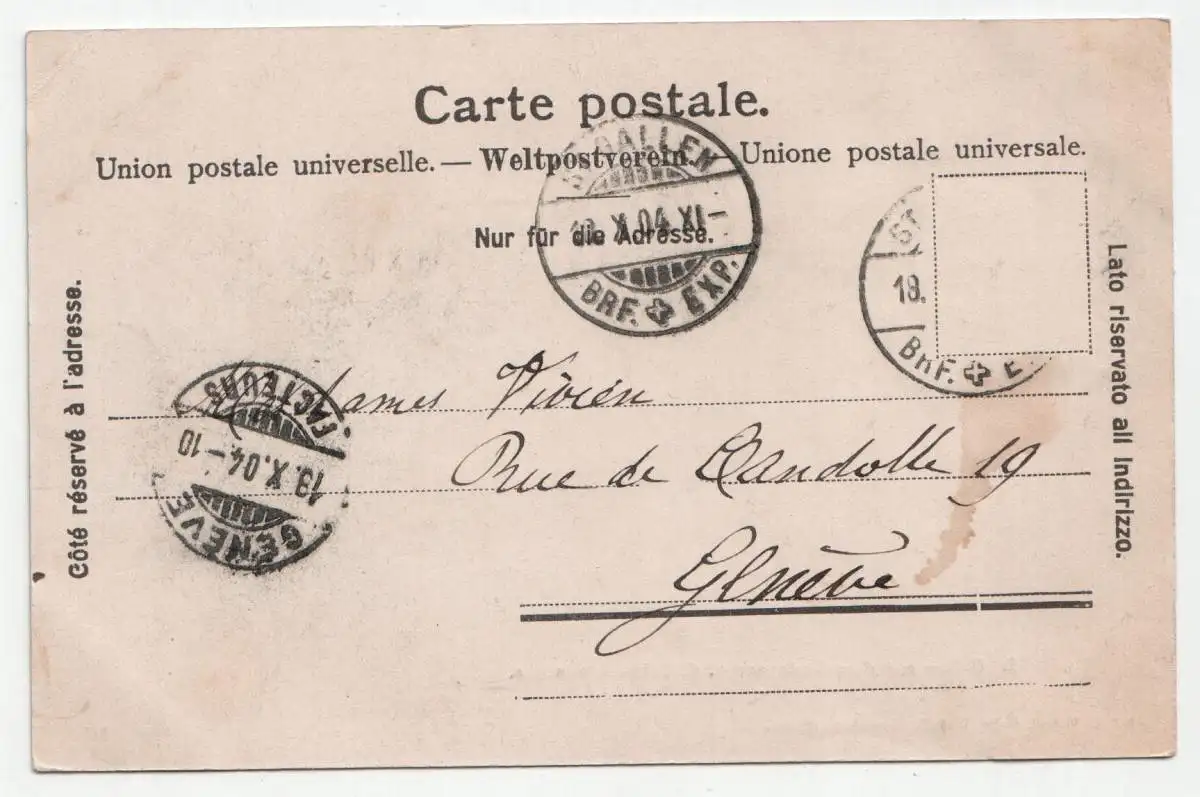 Carte postale.
Union postale universelle. — Weltpostverein. — Unione postale universale.
Nur für die Adresse.
Côté réservé à l'adresse.
Lato riservato all indirizzo.
ST. GALLEN
X.04.XI–
BRF. EXP.
ST
18.
BRF. E
FACTEURS
19.X.04–10
GENÈVE
Vivien
Rue de Candolle 19
Genève